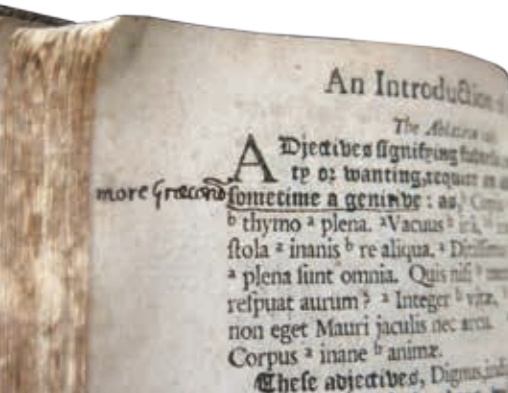 An Introduction
The Ablative
ADjectives signifying
ty or wanting, require an
more Græcorũ
sometime a genitive : as,
ᵇ thymo ᵃ plena. ᵃ Vacuus
ſtola ᵃ inanis ᵇ re aliqua. ᵃ
ᵃ plena ſunt omnia. Quis niſi ᵇ
reſpuat aurum ? ᵃ Integer ᵇ vitæ,
non eget Mauri jaculis nec arcu.
Corpus ᵃ inane ᵇ animæ.
Theſe adjectives, Dignus,